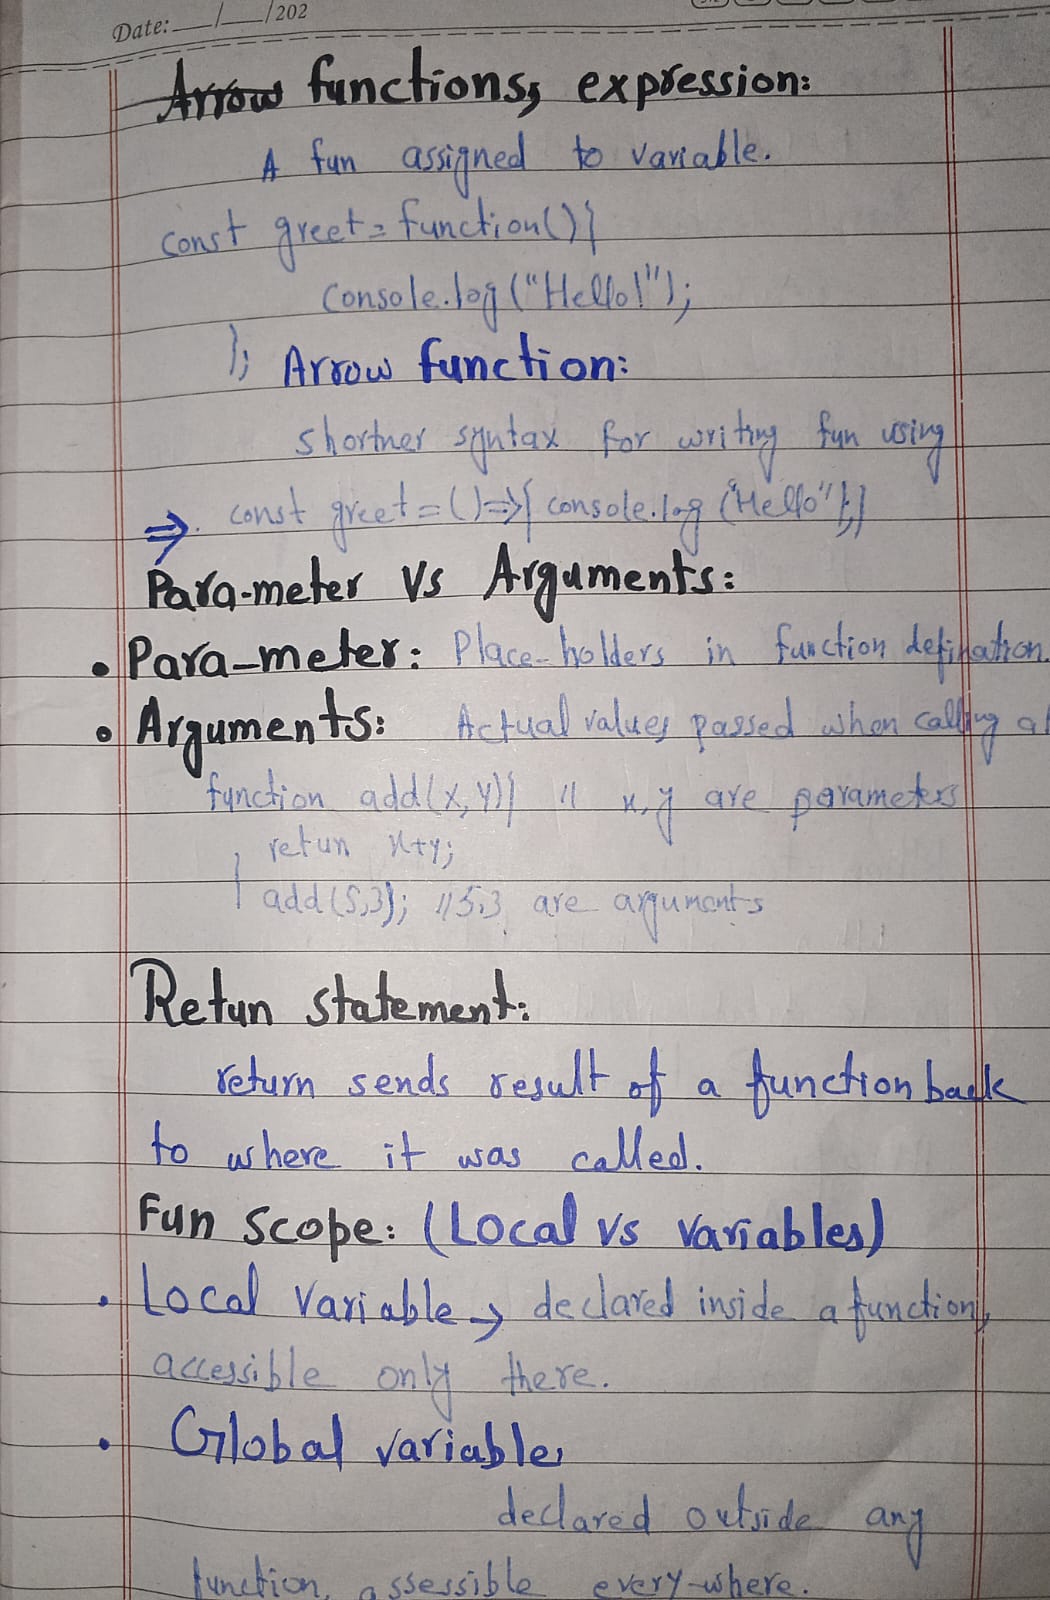 Date: __/__/202
Arrow functions, expression:
A fun assigned to variable.
const greet = function(){
console.log("Hello!");
}; Arrow function:
shortner syntax for writing fun using
⇒. const greet = () => { console.log ("Hello"};}
Para-meter Vs Arguments:
• Para-meter: Place-holders in function defination.
• Arguments: Actual values passed when calling a
function add(x,y){ // x,y are parameters
retun x+y;
} add(5,3); //5,3 are arguments
Retun statement:
return sends result of a function back
to where it was called.
Fun scope: (Local vs Variables)
• Local Variable → declared inside a function,
accessible only there.
• Global variable,
declared outside any
function, assessible every-where.